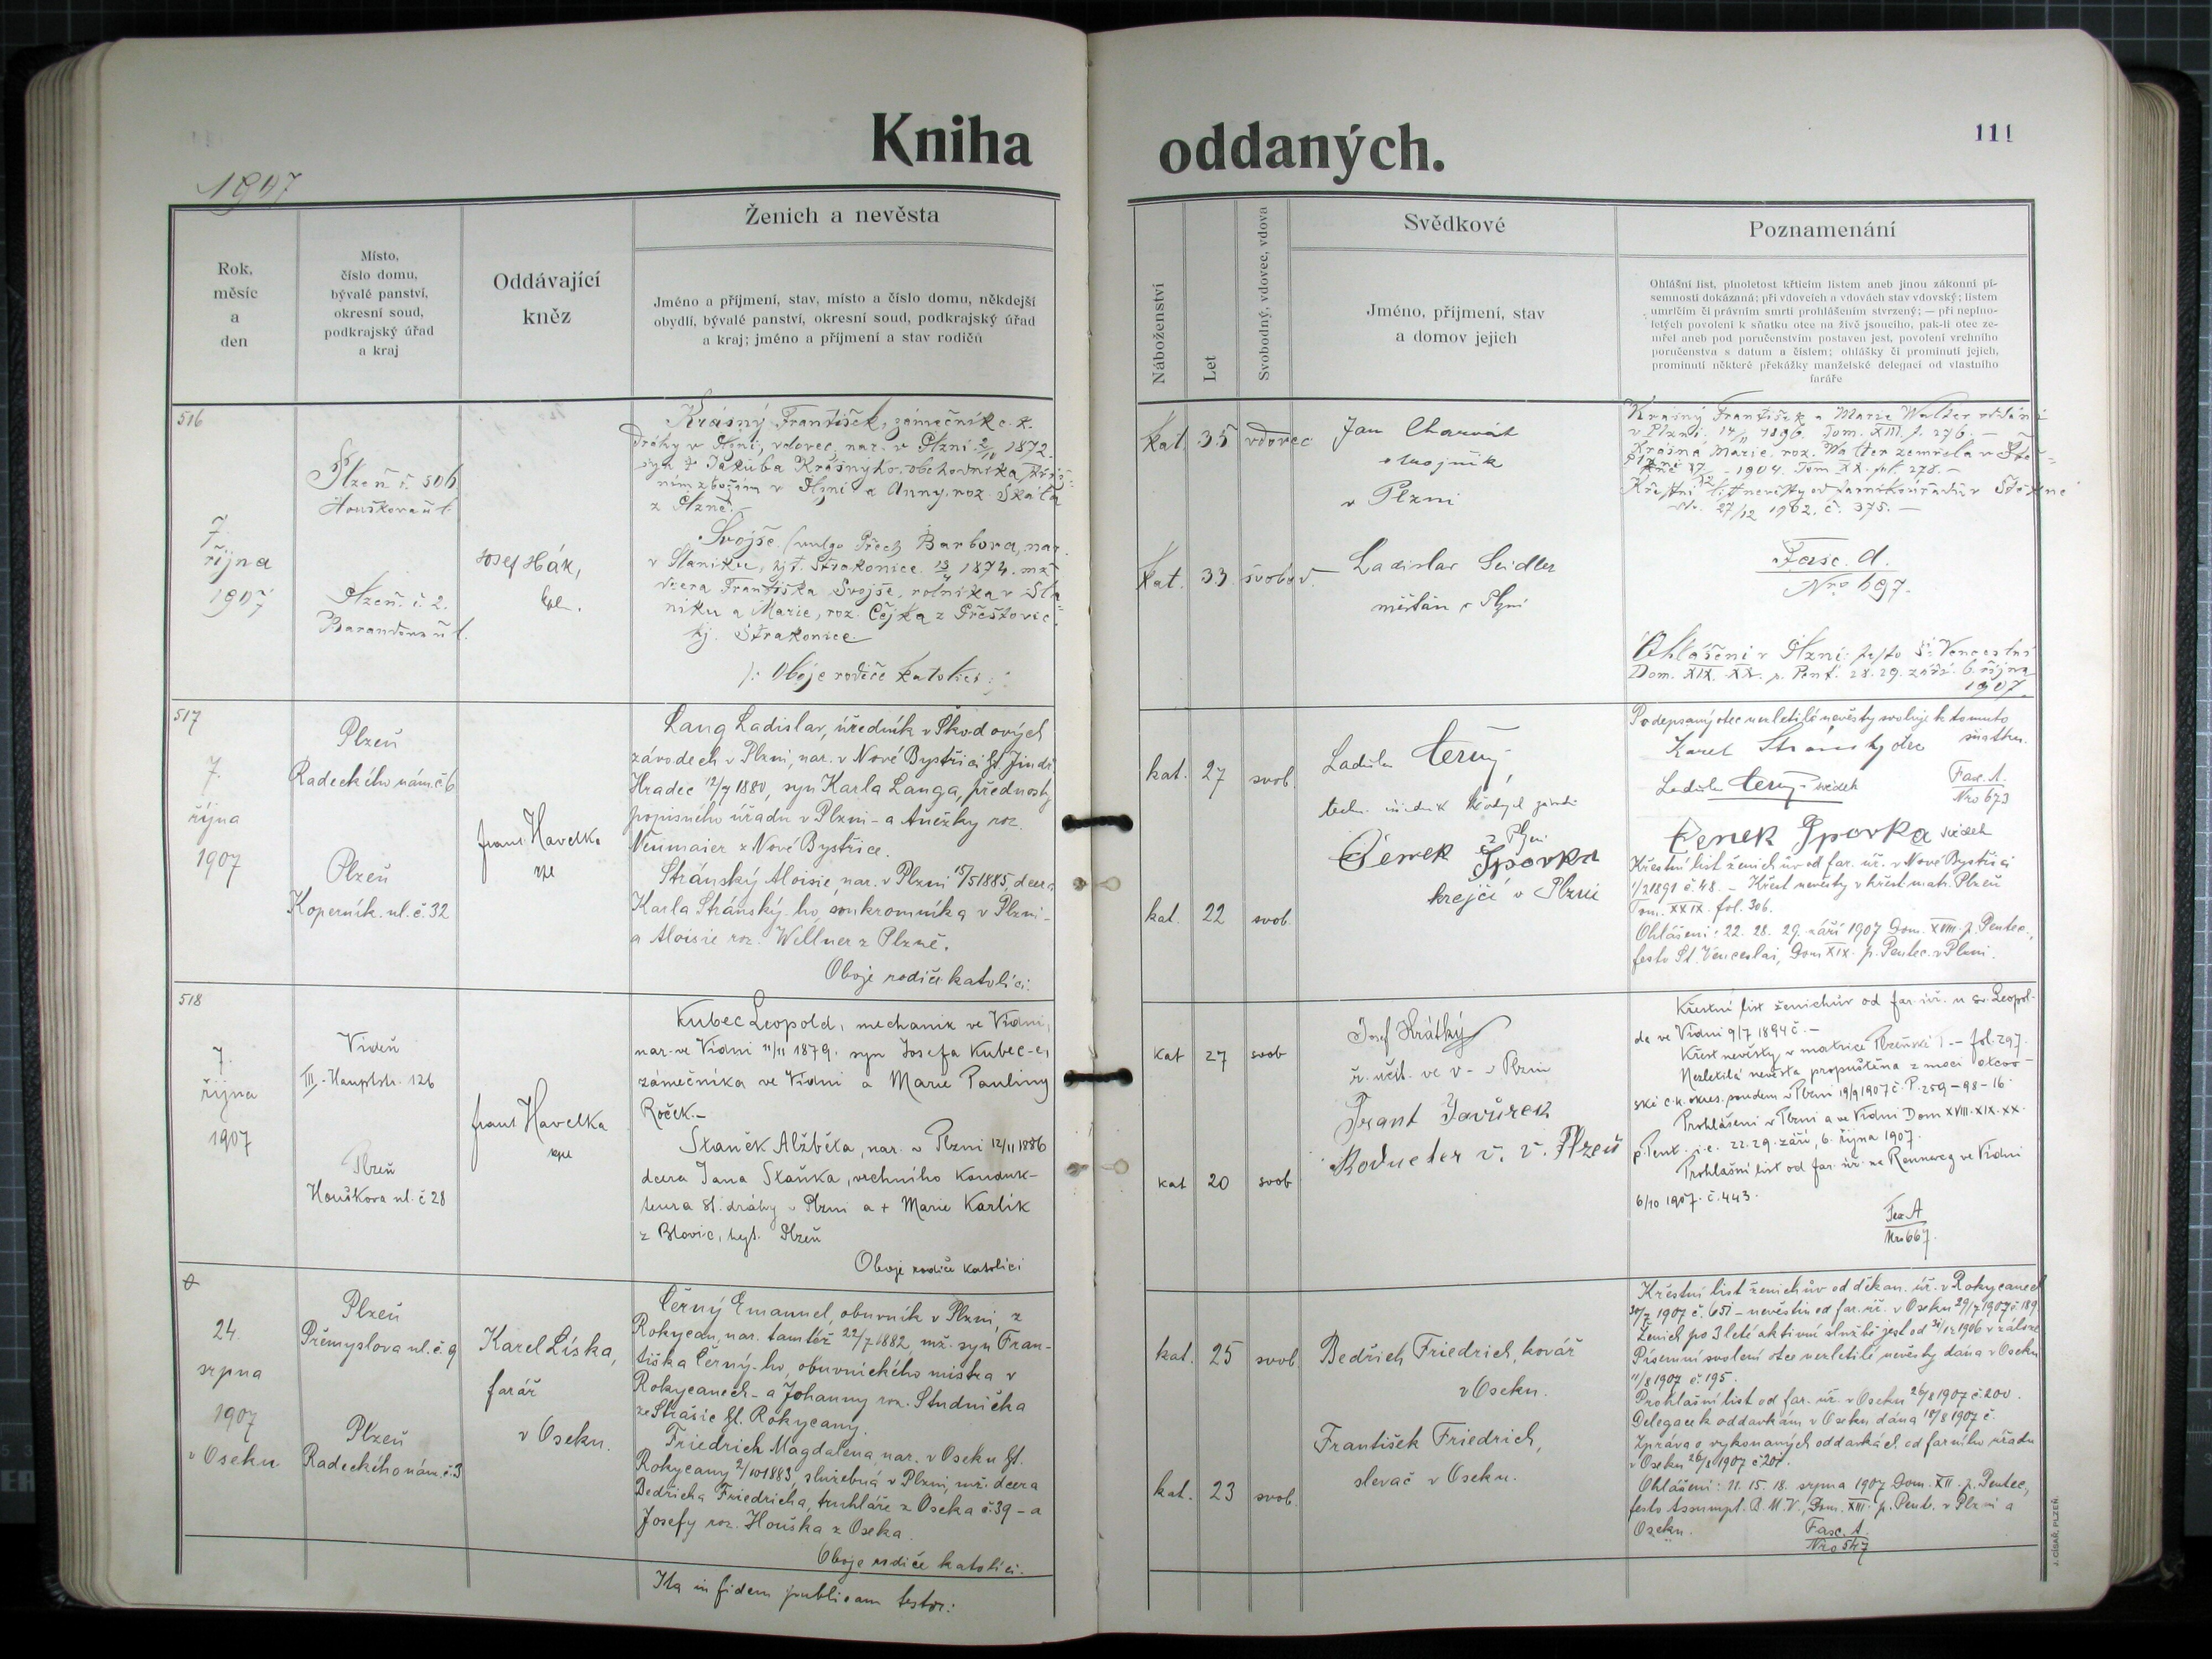 Kniha
oddaných.
111
1907
Rok,
měsíc
a
den
Místo,
číslo domu,
bývalé panství,
okresní soud,
podkrajský úřad
a kraj
Oddávající
kněz
Ženich a nevěsta
Jméno a příjmení, stav, místo a číslo domu, někdejší
obydlí, bývalé panství, okresní soud, podkrajský úřad
a kraj; jméno a příjmení a stav rodičů
Náboženství
Let
Svobodný, vdovec, vdova
Svědkové
Jméno, příjmení, stav
a domov jejich
Poznamenání
Ohlášní list, plnoletost křticím listem aneb jinou zákonní pí-
semností dokázaná; při vdovcích a vdovách stav vdovský; listem
umrlčím či právním smrti prohlášením stvrzený; — při neplno-
letých povolení k sňatku otce na živě jsoucího, pak-li otec ze-
mřel aneb pod poručenstvím postaven jest, povolení vrchního
poručenstva s datum a číslem; ohlášky či prominutí jejich,
prominutí některé překážky manželské delegací od vlastního
faráře
516
7.
října
1907
Plzeň č. 506
Houškova ul.
Plzeň. č. 2.
Barandova ul.
Josef Hák,
Krásný František, zámečník c. k.
dráhy v Plzni, vdovec, nar. v Plzni 1872.
syn † Jakuba Krásnýho, obchodníka
ním zbožím v Plzni a Anny, roz. Skála
z Plzně.
Svojše (vulgo Přech) Barbora, nar.
v Slaníku, hjt. Strakonice 1874. mž.
dcera Františka Svojše, rolníka v Sla-
níku a Marie, roz. Čejka z Přešťovic
hj. Strakonice
/: Oboje rodiče katolíci :/
kat. 35 vdovec
kat. 33 svobod.
Jan Charvát
v Plzni
Ladislav Seidler
měšťan v Plzni
Krásný František a Marie Walter oddáni
v Plzni 14/11 1896. Tom. XIII. f. 276. —
Krásná Marie, roz. Walter zemřela v
1904. Tom XX. fol. 278. —
Křestní list nevěsty od farního úřadu v Štěkně
27/12 1902. č. 375. —
Fasc. A.
Nro 697.
Ohlášeni v Plzni: festo S. Venceslai
Dom. XIX. XX. p. Pent. 28. 29. září. 6. října
1907.
517
7.
října
1907
Plzeň
Radeckého nám. č. 6
Plzeň
Koperník. ul. č. 32
Franz Havelka
Lang Ladislav, úředník v Škodových
závodech v Plzni, nar. v Nové Bystřici hjt. Jindř.
Hradec 12/7 1880, syn Karla Langa, přednosty
pojisného úřadu v Plzni - a Anežky roz.
Neumaier z Nové Bystřice.
Stránský Aloisie, nar. v Plzni 15/5 1885, dcera
Karla Stránský-ho, soukromníka v Plzni -
a Aloisie roz. Wellner z Plzně.
Oboje rodiče katolíci.
kat. 27 svob.
kat. 22 svob.
Ladislav Černý,
z Plzni
Čeněk Sporka
krejčí v Plzni
Podepsaný otec nezletilé nevěsty svoluje k tomuto
sňatku.
Karel Stránský otec
Ladislav Černý svědek
Fasc. A.
Nro 673
Čeněk Sporka svědek
Křestní list ženichův od far. úř. v Nové Bystřici
1/2 1891 č. 48. — Křest nevěsty v křest. matr. Plzeň
Tom. XXIX. fol. 306.
Ohlášeni: 22. 28. 29. září 1907 Dom. XVIII. p. Pentec.,
festo St. Venceslai, Dom XIX. p. Pentec. v Plzni.
518
7.
října
1907
Vídeň
III. Hauptstr. 126
Plzeň
Houškova ul. č 28
Franz Havelka
Kubec Leopold, mechanik ve Vídni,
nar. ve Vídni 11/11 1879. syn Josefa Kubec-e,
zámečníka ve Vídni a Marie Pauliny
Roček.—
Staněk Alžběta, nar. v Plzni 12/11 1886
dcera Jana Staňka, vrchního konduk-
teura st. dráhy v Plzni a + Marie Karlík
z Blovic, hejt. Plzeň
Oboje rodiče katolíci
kat 27 svob
kat 20 svob
Josef Krátký
ř. učit. ve v - v Plzni
Frant Javůrek
Kondukter v. v. Plzeň
Křestní list ženichův od far. úř. u sv. Leopol-
da ve Vídni 9/7 1894 č. —
Křest nevěsty v matrice Plzeňské fol. 297.
Nezletilá nevěsta propuštěna z moci otcov-
ské c. k. okres. soudem v Plzni 19/9 1907 č. P. 259 - 98 - 16.
Prohlášeni v Plzni a ve Vídni Dom XVIII. XIX. XX.
p. Pent. i. e. 22. 29. září, 6. října 1907.
Prohlášní list od far. úř. na Rennweg ve Vídni
6/10 1907. č. 443.
Fas A
Nro 667.
24.
srpna
1907
v Oseku.
Plzeň
Přemyslova ul. č. 9
Plzeň
Radeckého nám. č. 3
Karel Líska,
farář
v Oseku.
Černý Emanuel, obuvník v Plzni, z
Rokycan, nar. tamtéž 22/7 1882, mž. syn Fran-
tiška Černý-ho, obuvnického mistra v
Rokycanech - a Johanny roz. Studnička
ze Strašic hjt. Rokycany.
Friedrich Magdalena nar. v Oseku hjt.
Rokycany 2/10 1883, služebná v Plzni, mž. dcera
Bedřicha Friedricha, truhláře z Oseka č. 39 - a
Josefy roz. Houška z Oseka.
Oboje rodiče katolíci.
kat. 25 svob
kat. 23 svob.
Bedřich Friedrich, kovář
v Oseku.
František Friedrich,
slevač v Oseku.
Křestní list ženichův od děkan. úř. v Rokycanech
30/7 1907 č. 651 - nevěstin od far. úř. v Oseku 29/7 1907 č. 189.
Ženich po 3 leté aktivní službě jest od 31/12 1906 v záloze.
Písemní svolení otce nezletilé nevěsty dána v Oseku
11/8 1907 č. 195.
Prohlašní list od far. úř. v Oseku 26/8 1907 č. 200.
Delegace k oddavkám v Oseku dána 18/8 1907 č.
Zpráva o vykonaných oddavkách od farního úřadu
v Oseku 26/8 1907 č 201.
Ohlášeni: 11. 15. 18. srpna 1907 Dom. XII. p. Pentec,
festo Assumpt. B. M. V., Dom. XIII. p. Pent. v Plzni a
Oseku.
Fasc. A.
Nro 547
Ita in fidem publicam testor:
J. CÍSAŘ, PLZEŇ.